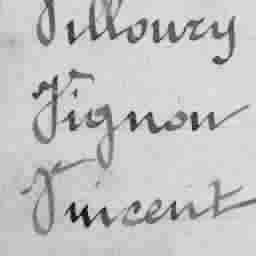 Villoury
Vignon
Vincent